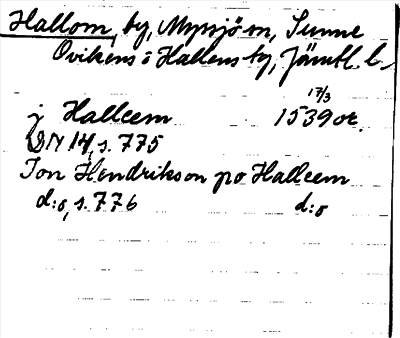 Hallom, by, Myssjö sn, Sunne
Ovikens o Hallens tg, Jämtl. l.
17/3
j Halleem 1539 or.
DN 14, s. 775
Jon Hendrikson po Halleem
d:o, s. 776 d:o